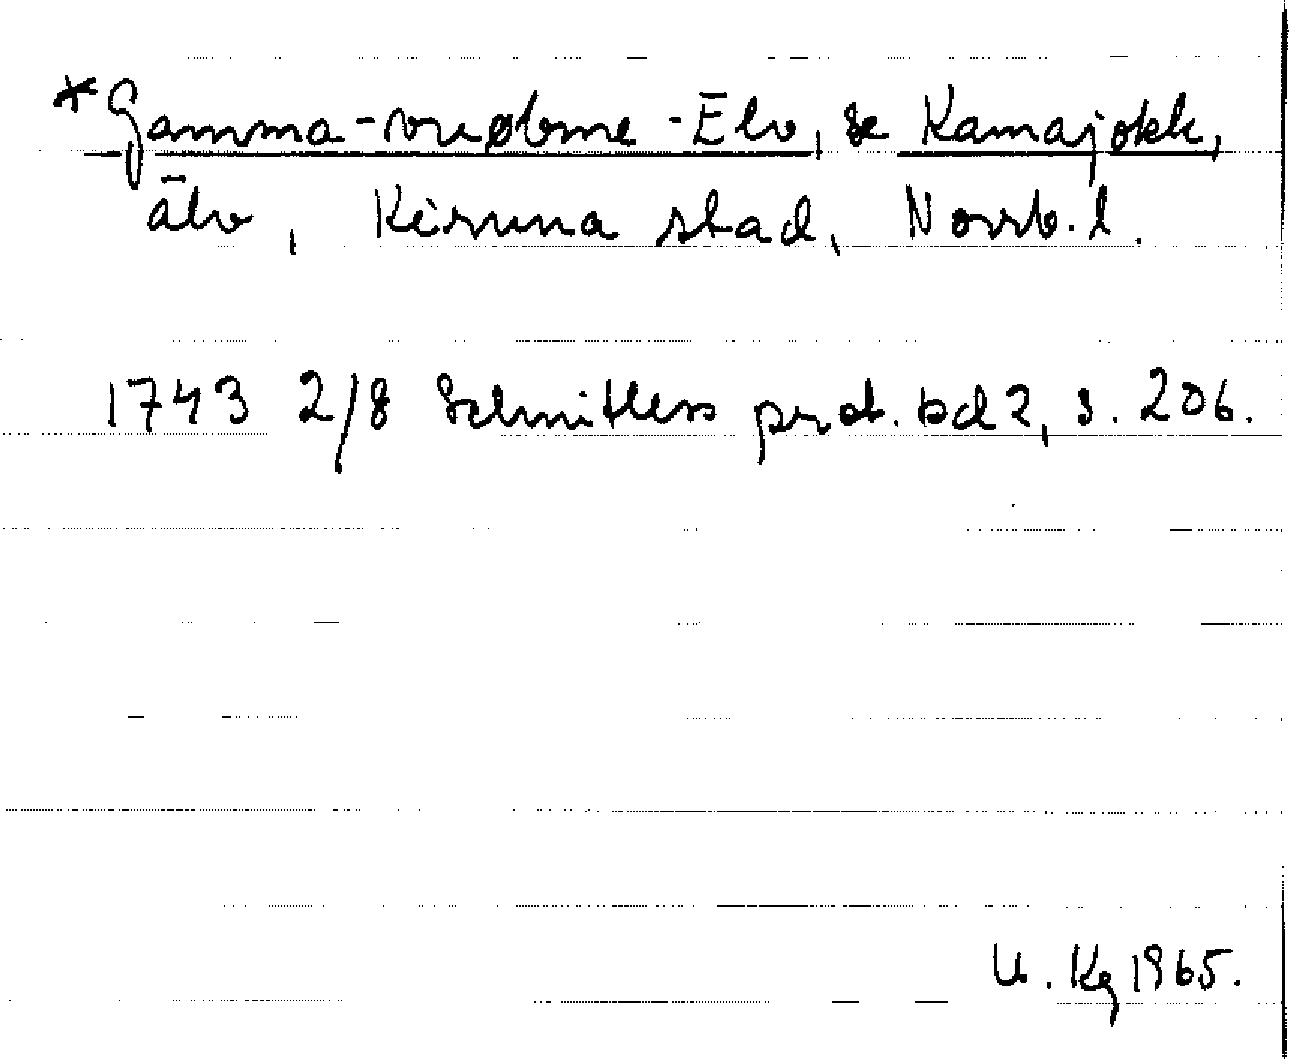 *Gamma-vuobme-Elv, se Kamajokk,
älv, Kiruna stad, Norrb.l.
1743 2/8 Schnitlers prot. bd 2, s. 206.
U. Kg 1965.